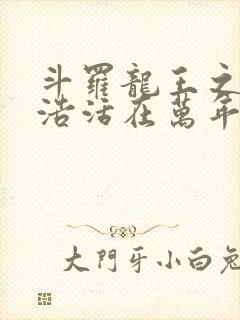 斗羅龍王之
浩活在萬年
大門牙小白兔